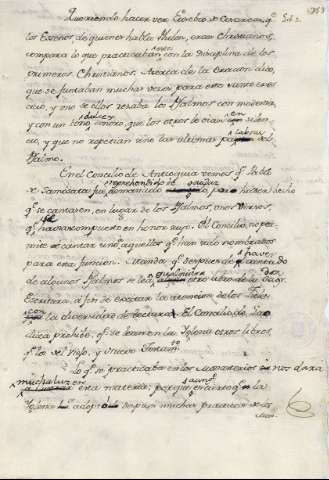 Queriendo hacer ver Eusebio de Cesarea, qᵉ
los Essenos de quienes habla Philon, eran Christianos,
compara lo que practicaban con la disciplina de los
primeros Christianos. Acerca de la oracion dice,
que se juntaban muchas veces para esto entre
dia, y uno de ellos rezaba los Psalmos con modestia,
y con un tono dulce, sonoro, que los otros le oian en silen
cio, y que no repetian sino las ultimas palabras del
Psalmo.
En el Concilio de Antioquia vemos qᵉ Pablo
de Samosata fue reprehendido de haber hecho
qᵉ se cantasen, en lugar de los Psalmos, unos versos,
qᵉ havian compuesto en honor suyo. El Concilio, no per-
mite se cantar sino aquellos qᵉ han sido nombrados
para esta funcion. Manda qᵉ despues de haver
de algunos Psalmos se lea otro libro de la
Escritura, a fin de excitar la atencion de los Fieles
con la diversidad de lectura. El Concilio de Lao
dicea prohibe qᵉ se lean en la Iglesia otros libros,
qᵉ los de Viejo, y Nuevo Testamᵗᵒ
Lo qᵉ se practicaba en los Monasterios nos dara
mucha luz en esta materia; porque la
Iglesia adopto despues muchas practicas de los